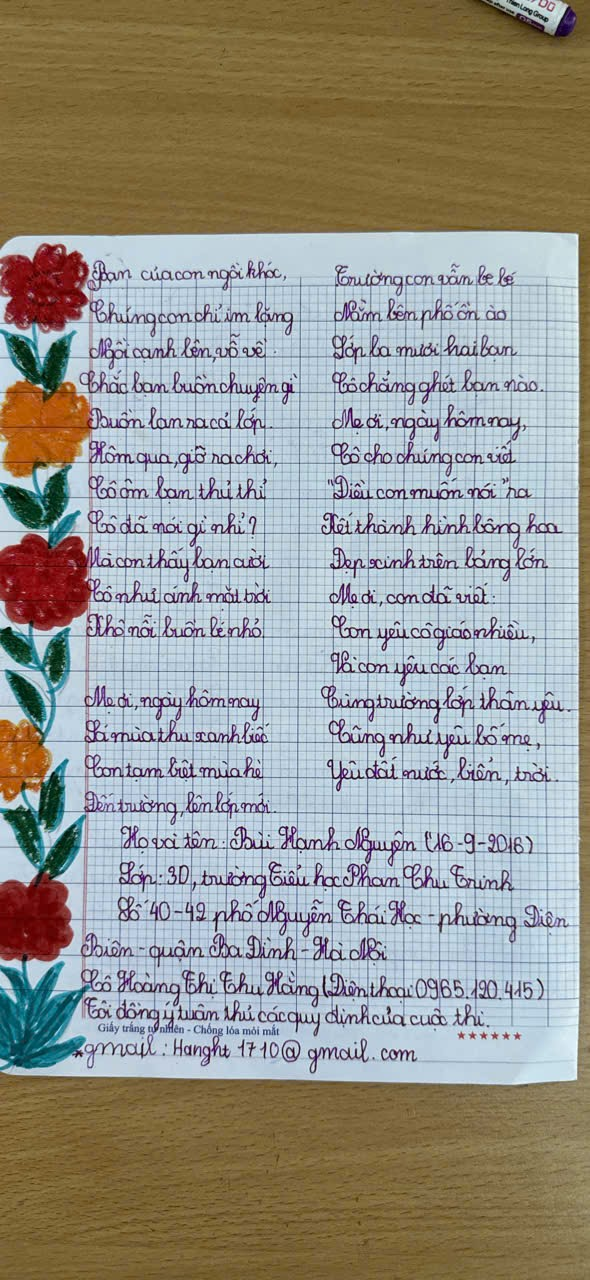 Thien Long Group
Bạn của con ngồi khóc,
Chúng con chỉ im lặng
Ngồi cạnh bên, vỗ về.
Chắc bạn buồn chuyện gì
Buồn lan ra cả lớp.
Hôm qua, giờ ra chơi,
Cô ôm bạn thủ thỉ
Cô đã nói gì nhỉ?
Mà con thấy bạn cười
Cô như ánh mặt trời
Khô nỗi buồn bé nhỏ
Mẹ ơi, ngày hôm nay
Là mùa thu xanh biếc
Con tạm biệt mùa hè
Đến trường, lên lớp mới.
Trường con vẫn be bé
Nằm bên phố ồn ào
Lớp ba mươi hai bạn
Cô chẳng ghét bạn nào.
Mẹ ơi, ngày hôm nay,
Cô cho chúng con viết
"Điều con muốn nói" ra
Kết thành hình bông hoa
Đẹp xinh trên bảng lớn
Mẹ ơi, con đã viết:
Con yêu cô giáo nhiều,
Và con yêu các bạn
Cùng trường lớp thân yêu.
Cũng như yêu bố mẹ,
Yêu đất nước, biển, trời.
Họ và tên: Bùi Hạnh Nguyên (16-9-2016)
Lớp: 3D, trường Tiểu học Phan Chu Trinh
Số 40-42 phố Nguyễn Thái Học - phường Điện
Biên - quận Ba Đình - Hà Nội
Cô Hoàng Thị Thu Hằng (Điện thoại 0965.120.415)
Tôi đồng ý tuân thủ các quy định của cuộc thi.
Giấy trắng tự nhiên - Chống lóa mỏi mắt
*gmail: Hanght 1710@gmail.com